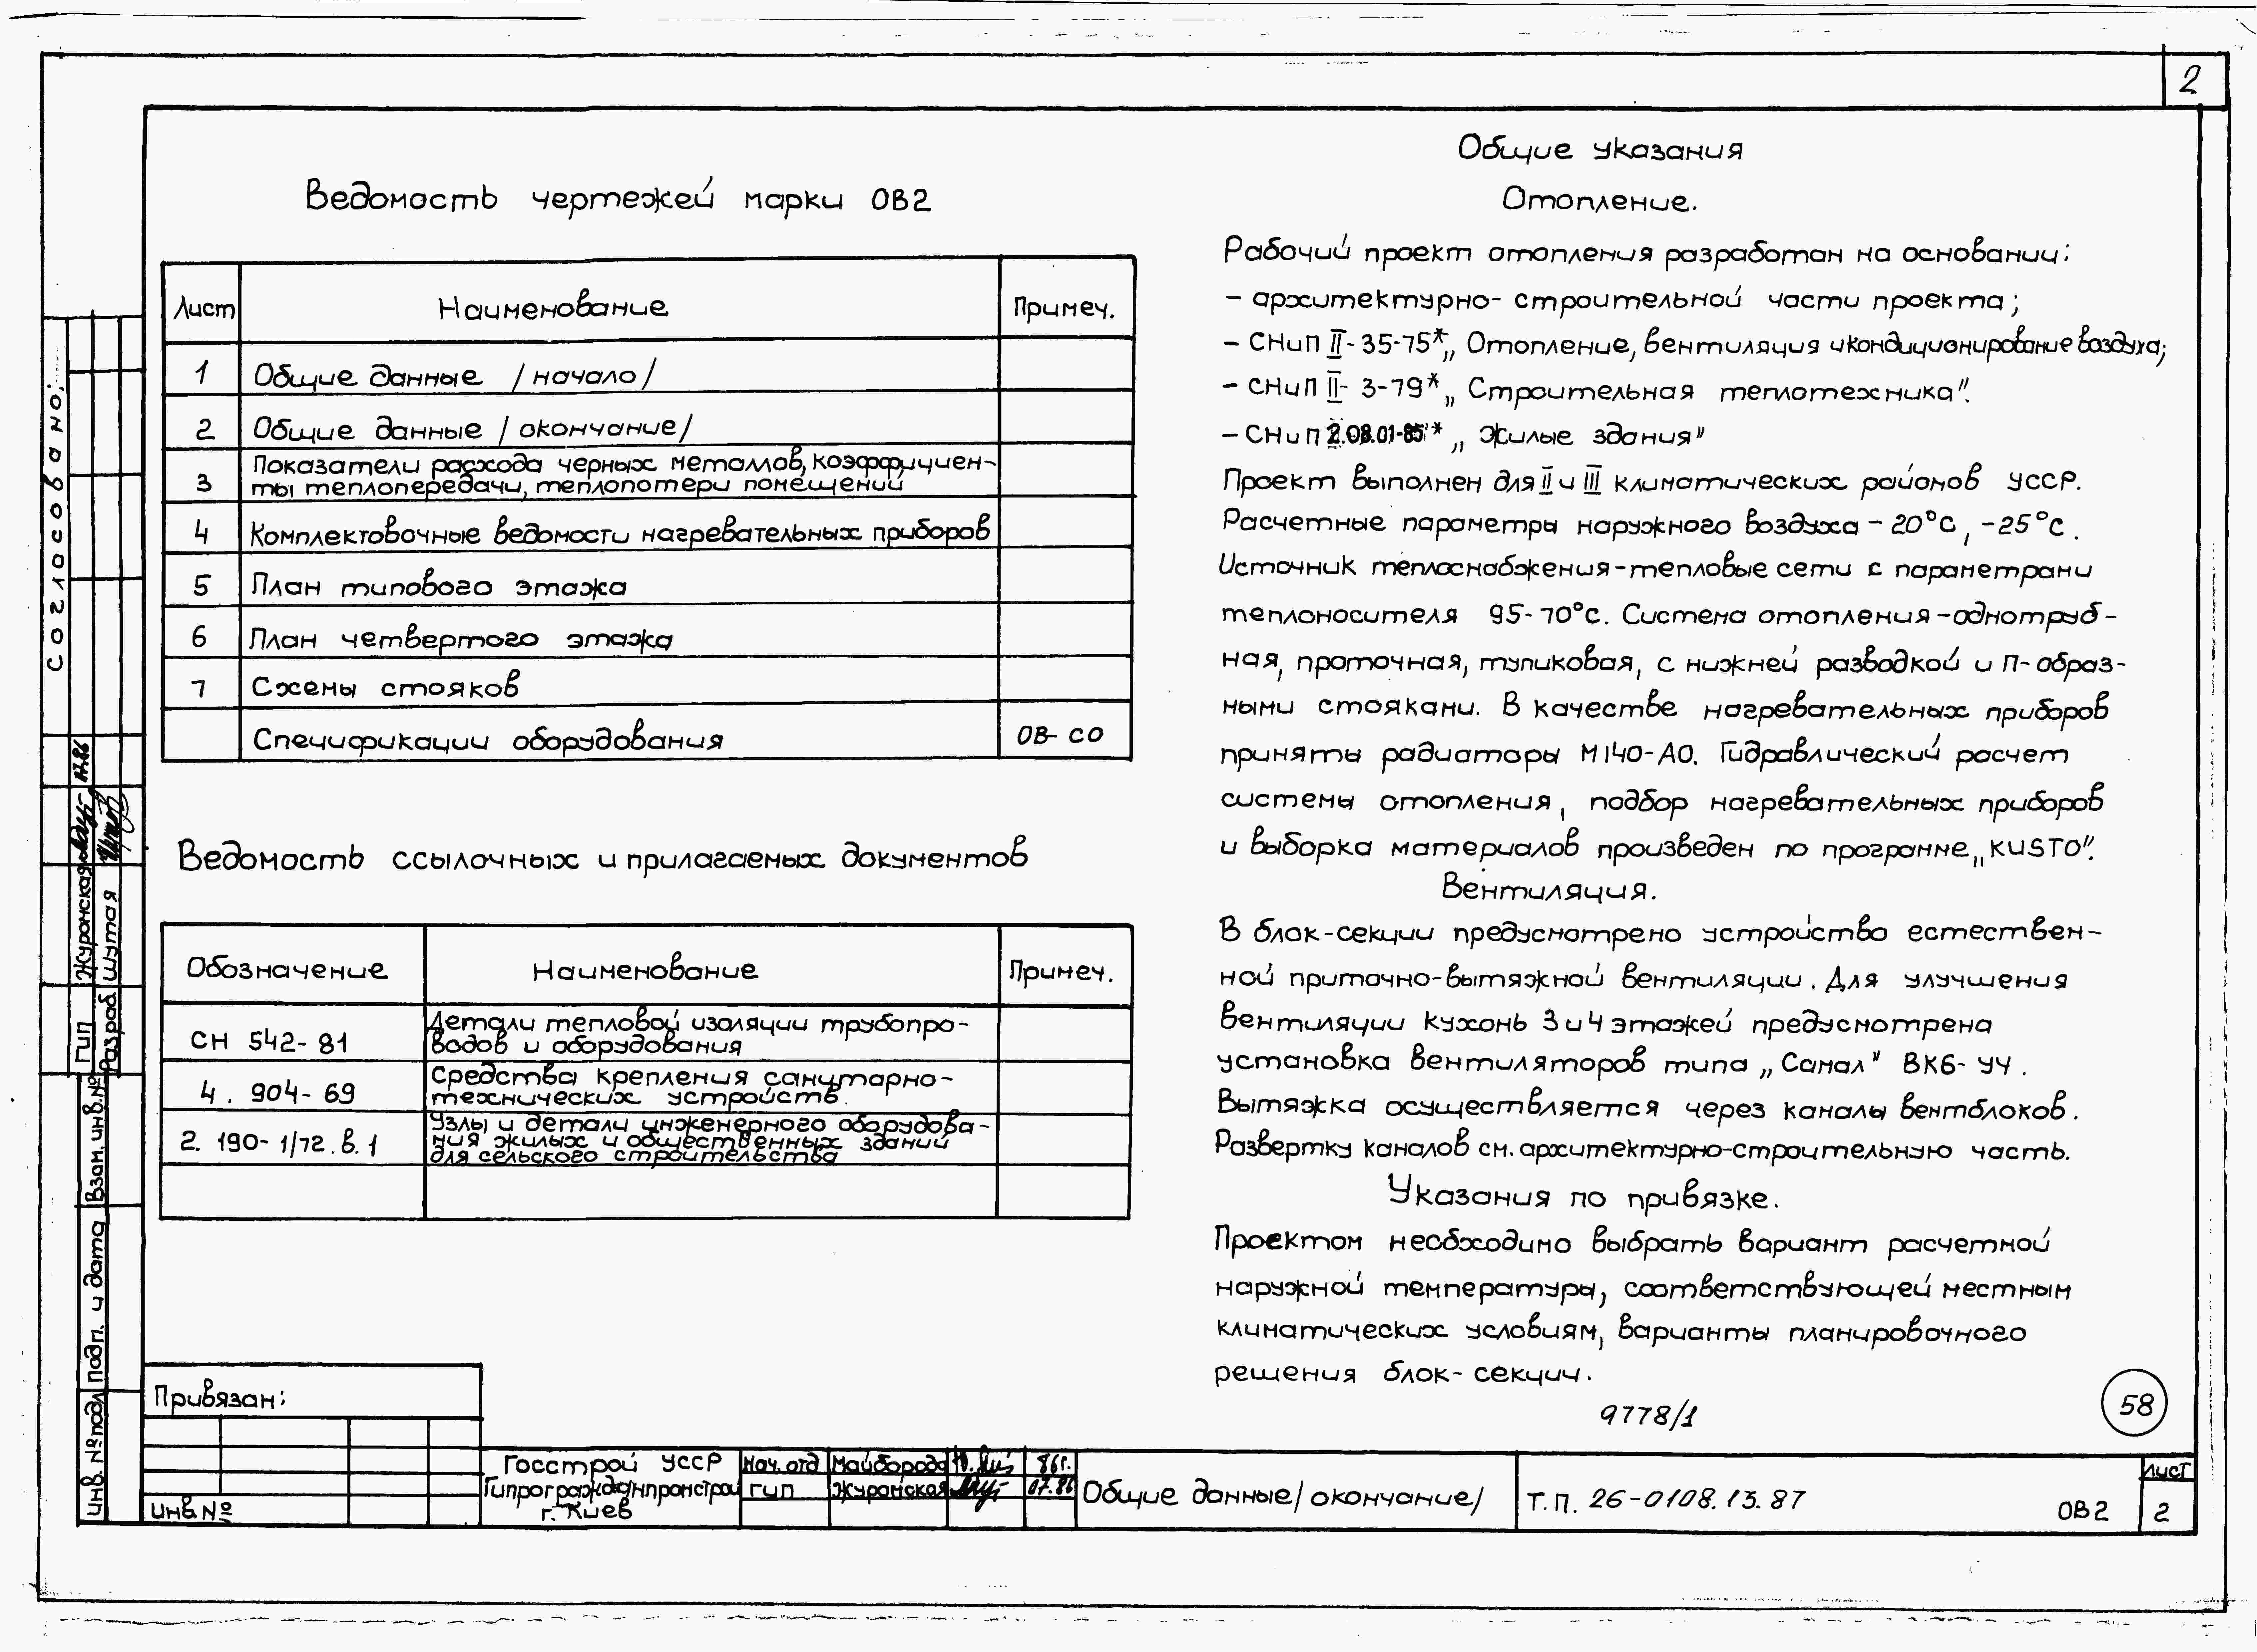 2
Ведомость чертежей марки ОВ2
Лист Наименование Примеч.
1 Общие данные /начало/
2 Общие данные /окончание/
3 Показатели расхода черных металлов, коэффициен-
ты теплопередачи, теплопотери помещений
4 Комплектовочные ведомости нагревательных приборов
5 План типового этажа
6 План четвертого этажа
7 Схемы стояков
Спецификации оборудования ОВ-СО
Ведомость ссылочных и прилагаемых документов
Обозначение Наименование Примеч.
СН 542-81 Детали тепловой изоляции трубопро-
водов и оборудования
4.904-69 Средства крепления санитарно-
технических устройств.
2.190-1/72.в.1 Узлы и детали инженерного оборудова-
ния жилых и общественных зданий
для сельского строительства
Общие указания
Отопление.
Рабочий проект отопления разработан на основании:
- архитектурно-строительной части проекта;
- СНиП II-35-75* „Отопление, вентиляция и кондиционирование воздуха;
- СНиП II-3-79* „Строительная теплотехника".
- СНиП 2.08.01-85* „Жилые здания"
Проект выполнен для II и III климатических районов УССР.
Расчетные параметры наружного воздуха -20°С, -25°С.
Источник теплоснабжения-тепловые сети с параметрами
теплоносителя 95-70°С. Система отопления-однотруб-
ная, проточная, тупиковая, с нижней разводкой и П-образ-
ными стояками. В качестве нагревательных приборов
приняты радиаторы М140-АО. Гидравлический расчет
системы отопления, подбор нагревательных приборов
и выборка материалов произведен по программе „KUSTO".
Вентиляция.
В блок-секции предусмотрено устройство естествен-
ной приточно-вытяжной вентиляции. Для улучшения
вентиляции кухонь 3 и 4 этажей предусмотрена
установка вентиляторов типа „Самал" ВК6-У4.
Вытяжка осуществляется через каналы вентблоков.
Развертку каналов см. архитектурно-строительную часть.
Указания по привязке.
Проектом необходимо выбрать вариант расчетной
наружной температуры, соответствующей местным
климатических условиям, варианты планировочного
решения блок-секции.
9778/1
58
Согласовано:
ГИП Журомская 07.86
Разраб Шутая
Взам. инв. №
Подп. и дата
Инв. № подл
Привязан:
Инв №
Госстрой УССР
Гипрограждмпромстрой
г. Киев
Нач. отд Майборода 86г.
ГИП Журомская 07.86
Общие данные /окончание/
Т.П. 26-0108.13.87
ОВ2
Лист
2